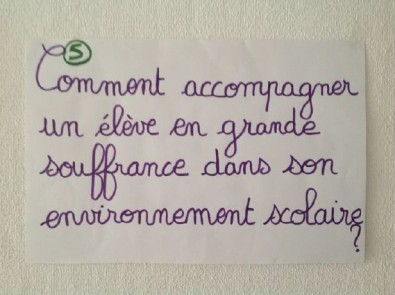 5
Comment accompagner
un élève en grande
souffrance dans son
environnement scolaire
?